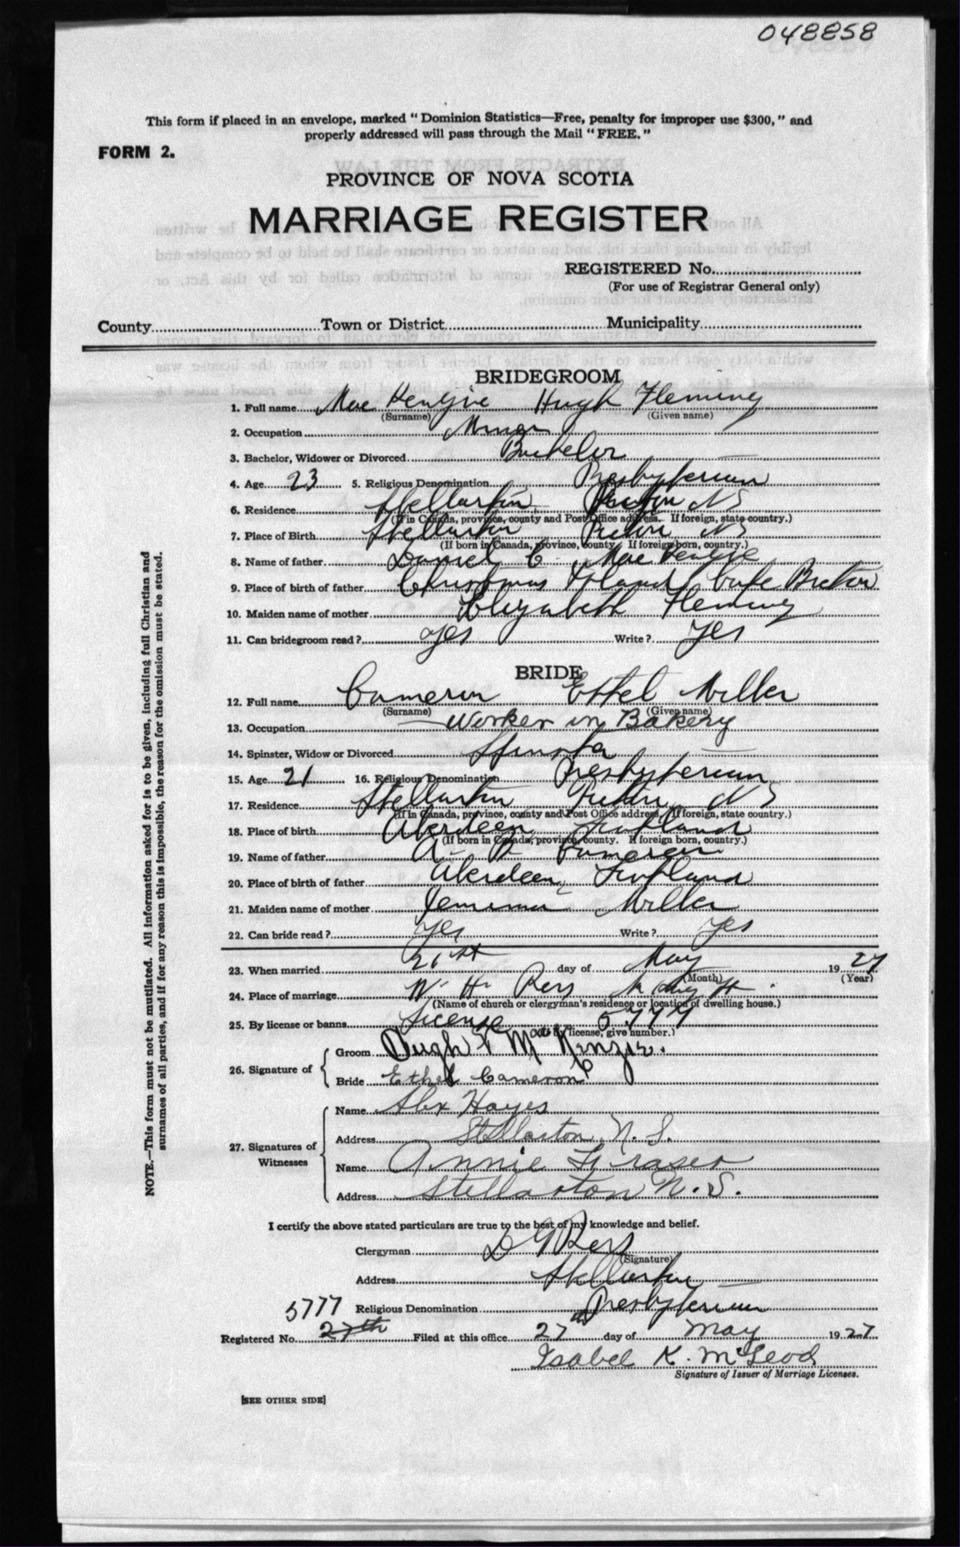 048858
This form if placed in an envelope, marked "Dominion Statistics—Free, penalty for improper use $300," and
properly addressed will pass through the Mail "FREE."
FORM 2.
PROVINCE OF NOVA SCOTIA
MARRIAGE REGISTER
REGISTERED No.
(For use of Registrar General only)
County Town or District Municipality
BRIDEGROOM
1. Full name Mac Kenzie Hugh Fleming
(Surname) (Given name)
2. Occupation Miner
3. Bachelor, Widower or Divorced Bachelor
4. Age 23 5. Religious Denomination Presbyterian
6. Residence Stellarton Pictou NS
(If in Canada, province, county and Post Office address. If foreign, state country.)
7. Place of Birth Stellarton Pictou NS
(If born in Canada, province, county. If foreign born, country.)
8. Name of father Daniel C. MacKenzie
9. Place of birth of father Christmas Island Cape Breton
10. Maiden name of mother Elizabeth Fleming
11. Can bridegroom read? Yes Write? Yes
BRIDE
12. Full name Cameron Ethel Miller
(Surname) (Given name)
13. Occupation Worker in Bakery
14. Spinster, Widow or Divorced Spinster
15. Age 21 16. Religious Denomination Presbyterian
17. Residence Stellarton Pictou NS
(If in Canada, province, county and Post Office address, If foreign, state country.)
18. Place of birth Aberdeen Scotland
(If born in Canada, province, county. If foreign born, country.)
19. Name of father A. Cameron
20. Place of birth of father Aberdeen, Scotland
21. Maiden name of mother Jemima Miller
22. Can bride read? Yes Write? Yes
23. When married 21st day of May 1927
(Month) (Year)
24. Place of marriage W. H.
(Name of church or clergyman's residence or location of dwelling house.)
25. By license or banns License 5777
(If by license, give number.)
26. Signature of
Groom Hugh F McKenzie.
Bride Ethel Cameron
27. Signatures of Witnesses
Name Alex Hayes
Address Stellarton, N.S.
Name Annie Fraser
Address Stellarton N.S.
I certify the above stated particulars are true to the best of my knowledge and belief.
Clergyman D G Ross
(Signature)
Address Stellarton
5777 Religious Denomination Presbyterian
Registered No. 27th Filed at this office 27 day of May 1927
Isabel K. McLeod
Signature of Issuer of Marriage Licenses.
[SEE OTHER SIDE]
NOTE.—This form must not be mutilated. All information asked for is to be given, including full Christian and
surnames of all parties, and if for any reason this is impossible, the reason for the omission must be stated.